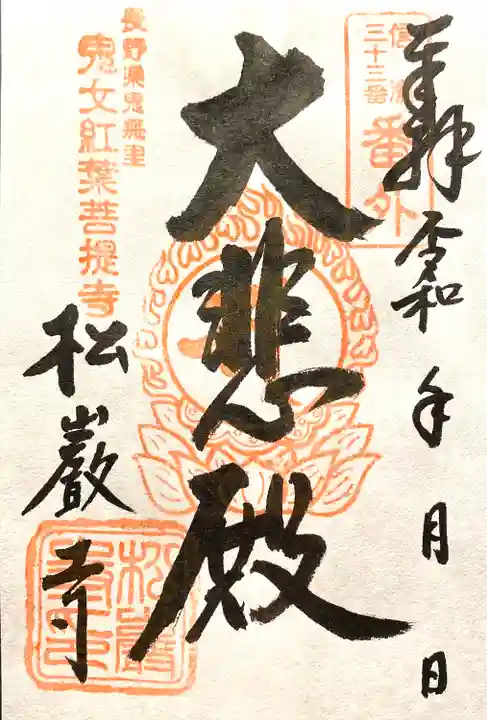 奉拝
令和 年 月 日
信濃
三十三番
番外
大悲殿
長野県鬼無里
鬼女紅葉菩提寺
松巌寺
松巌寺印